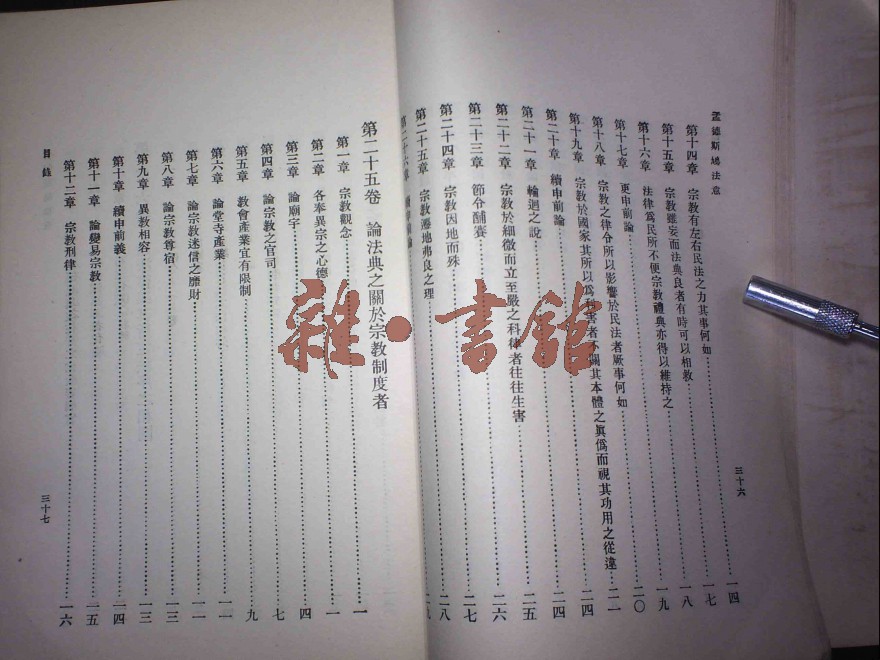 孟德斯鳩法意
第十四章 宗教有左右民法之力其事何如 一四
第十五章 宗教雖妄而法典良者有時可以相救 一七
第十六章 法律爲民所不便宗教禮典亦得以維持之 一八
第十七章 更申前論 一九
第十八章 宗教之律令所以影響於民法者厥事何如 二〇
第十九章 宗教於國家其所以爲利害者不關其本體之眞僞而視其功用之從違 二一
第二十章 續申前論 二四
第二十一章 輪迴之說 二四
第二十二章 宗教於細微而立至嚴之科律者往往生害 二五
第二十三章 節令酺賽 二六
第二十四章 宗教因地而殊 二七
第二十五章 宗教遷地弗良之理 二八
第二十六章 續申前論
三十六
第二十五卷 論法典之關於宗教制度者 一
第一章 宗教觀念 一
第二章 各奉異宗之心德
第三章 論廟宇 四
第四章 論宗教之官司 七
第五章 教會產業宜有限制 九
第六章 論堂寺產業 一一
第七章 論宗教迷信之靡財 一一
第八章 論宗教尊宿 一三
第九章 異教相容 一三
第十章 續申前義 一四
第十一章 論變易宗教 一五
第十二章 宗教刑律 一六
目錄
三十七
雜·書館